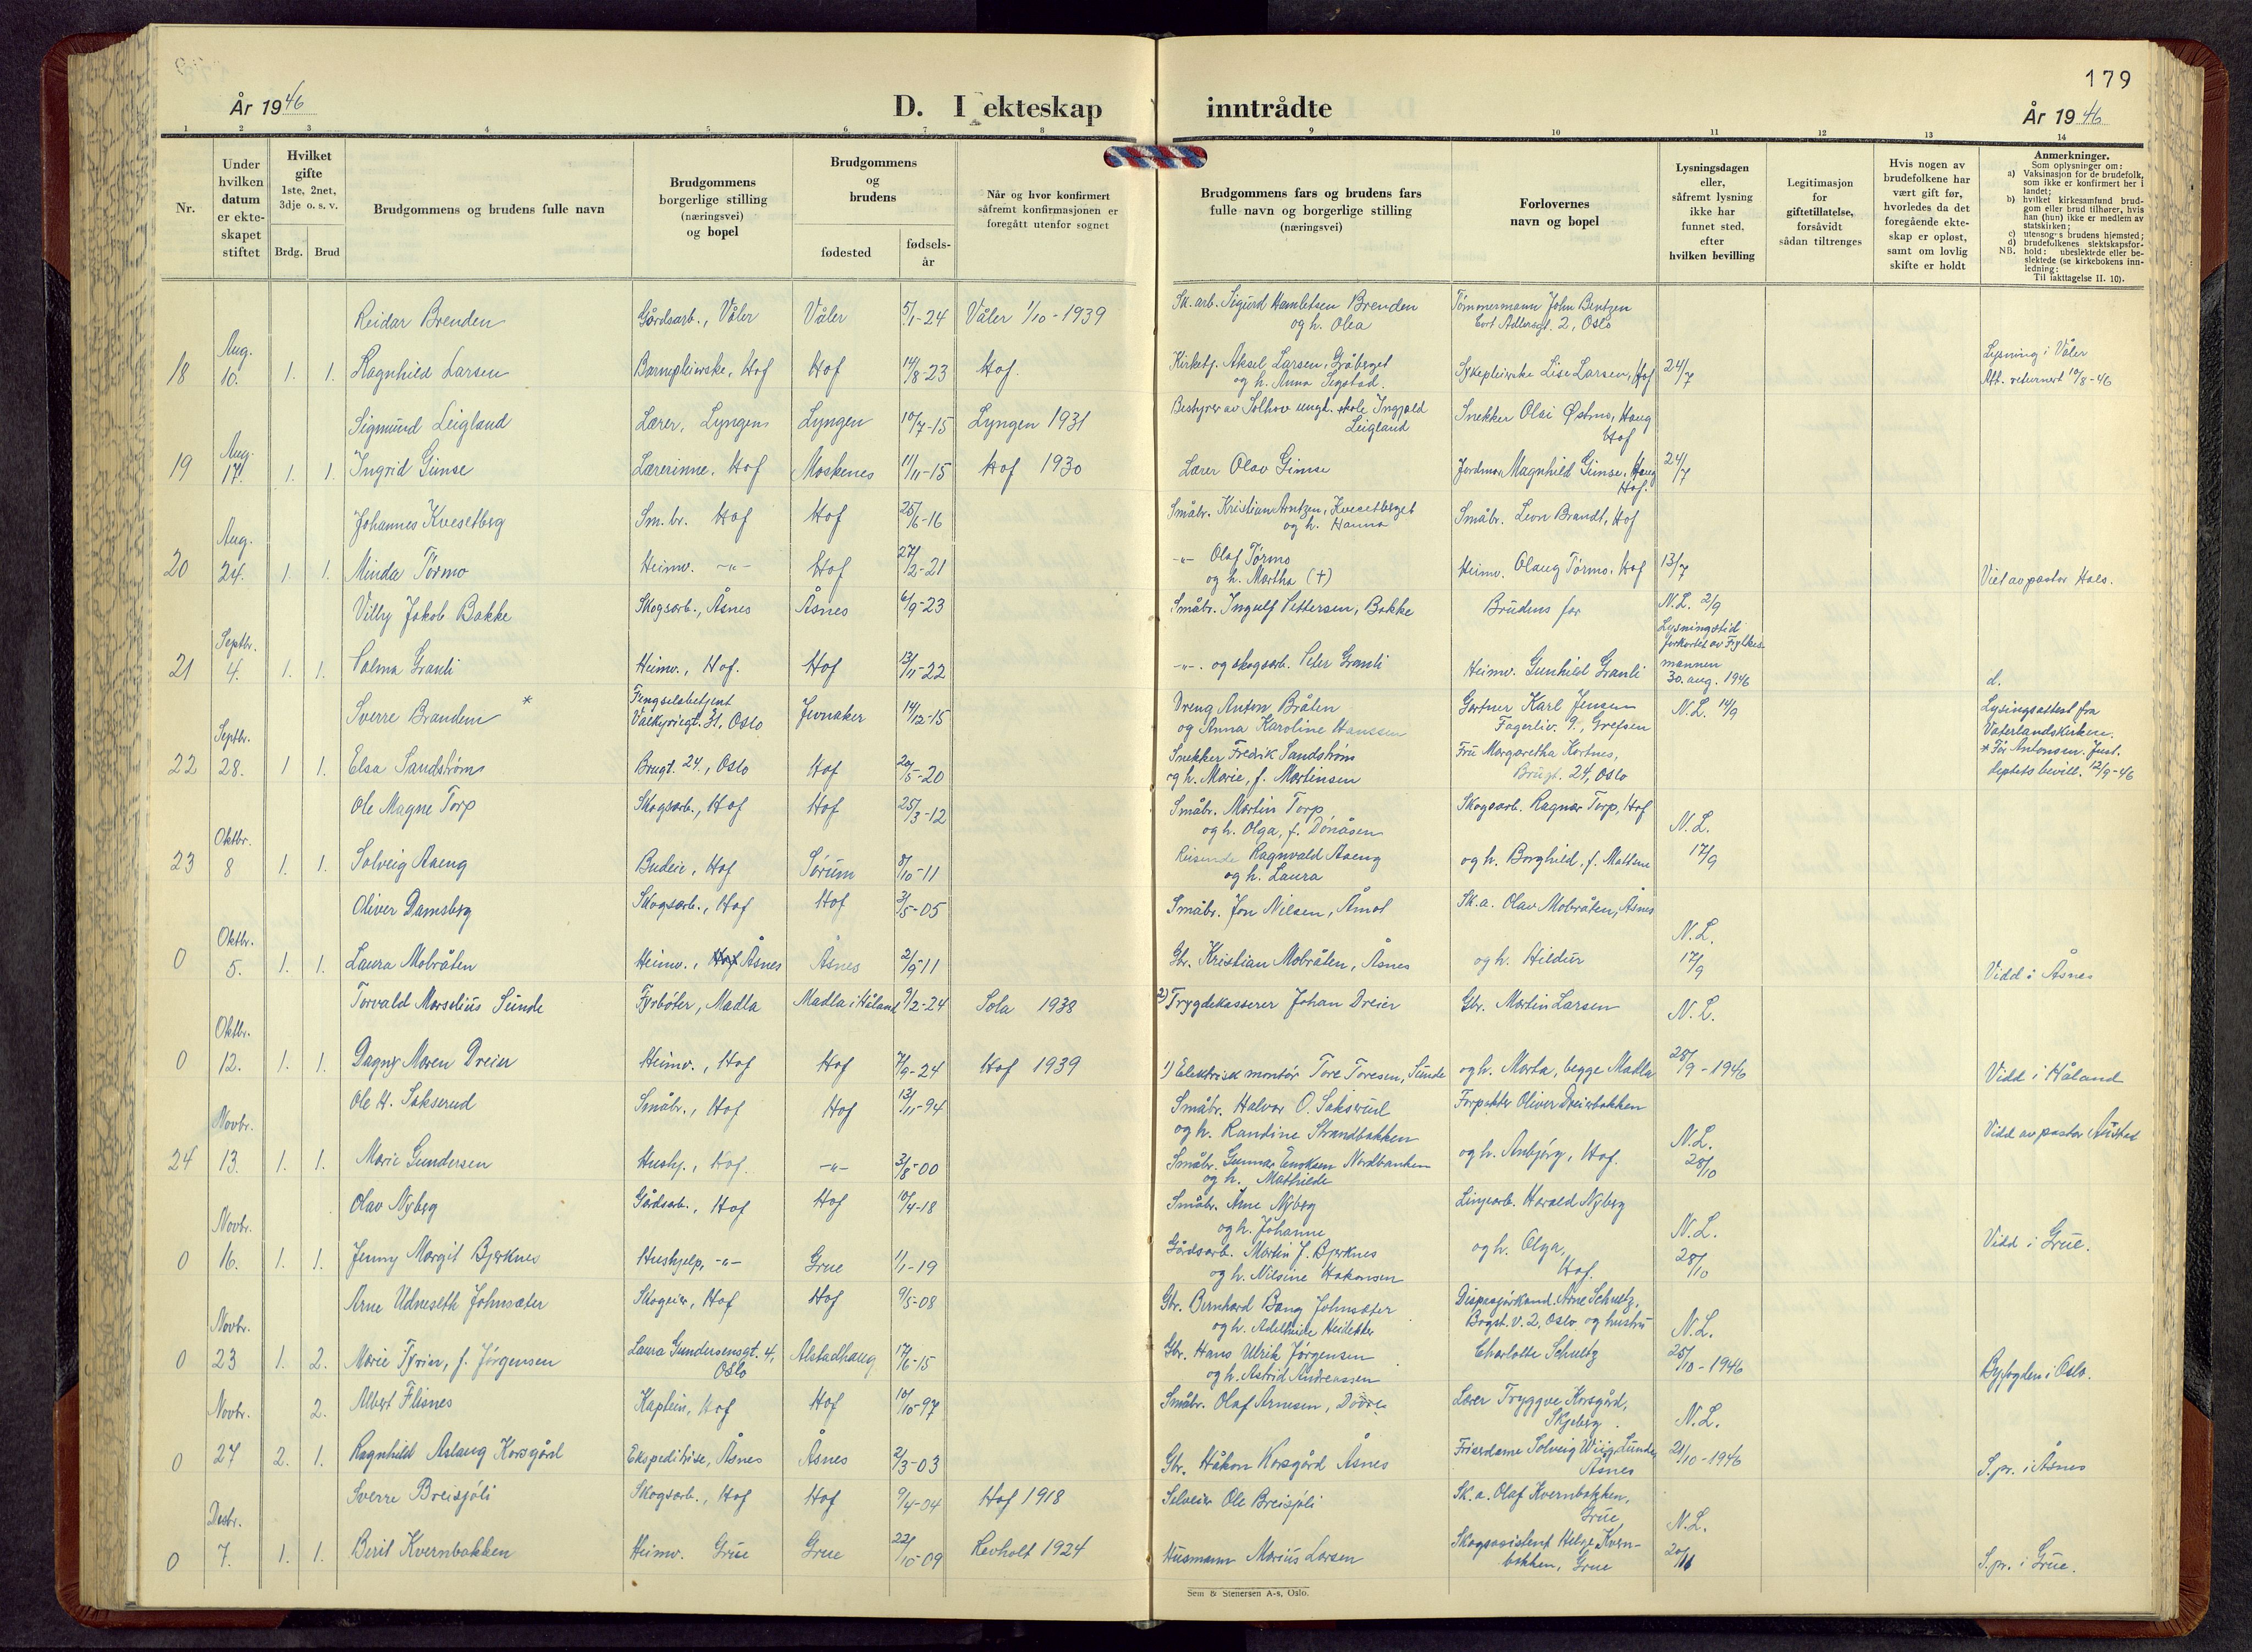 179
År 1946
D. I ekteskap
inntrådte
År 1946
1 2 3 4 5 6 7 8 9 10 11 12 13 14
Nr.
Under hvilken datum er ekte-skapet stiftet
Hvilket gifte
1ste, 2net, 3dje o. s. v.
Brdg. Brud
Brudgommens og brudens fulle navn
Brudgommens borgerlige stilling (næringsvei) og bopel
Brudgommens og brudens
fødested
fødsels-år
Når og hvor konfirmert
såfremt konfirmasjonen er
foregått utenfor sognet
Brudgommens fars og brudens fars
fulle navn og borgerlige stilling
(næringsvei)
Forlovernes
navn og bopel
Lysningsdagen
eller,
såfremt lysning
ikke har
funnet sted,
efter
hvilken bevilling
Legitimasjon
for
giftetillatelse,
forsåvidt
sådan tiltrenges
Hvis nogen av
brudefolkene har
vært gift før,
hvorledes da det
foregående ekte-
skap er opløst,
samt om lovlig
skifte er holdt
Anmerkninger.
Som oplysninger om:
a) Vaksinasjon for de brudefolk,
som ikke er konfirmert her i
landet;
b) hvilket kirkesamfund brud-
gom eller brud tilhører, hvis
han (hun) ikke er medlem av
statskirken;
c) utensogns brudens hjemsted;
d) brudefolkenes slektskapsfor-
NB. hold: ubeslektede eller be-
slektede (se kirkebokens inn-
ledning:
Til iakttagelse II. 10).
Reidar Brenden Gårdsarb., Våler Våler 5/1-24 Våler 1/10-1939 Sk.arb. Sigurd Hamletsen Brenden Tømmermann John Bentzen
og h. Olea Cort Adlersgt. 2, Oslo
Aug. Lysning i Våler
18 10. 1. 1. Ragnhild Larsen Barnepleierske, Hof Hof 14/8-23 Hof. Kirketj. Aksel Larsen, Gråberget Sykepleierske Lise Larsen, Hof 24/7
og h. Anna Segstad. Att. returnert 10/8-46
Sigmund Leigland Lærer, Lyngen Lyngen 10/7-15 Lyngen 1931 Bestyrer av Solhov ungd. skole Ingjald Leigland Snekker Olai Østmo, Haug Hof
Aug.
19 17. 1. 1. Ingrid Gimse Lærerinne, Hof Moskenes 11/11-15 Hof 1930 Lærer Olav Gimse Jordmor Magnhild Gimse, Haug Hof. 24/7
Johannes Kvesetberg Sm.br. Hof Hof 25/6-16 Småbr. Kristian Arntzen, Kvesetberget og h. Hanna Småbr. Leon Brandt, Hof
Aug.
20 24. 1. 1. Minda Tørmo Heimv. -"- Hof 27/2-21 -"- Olaf Tørmo og h. Martha (+) Heimv. Olaug Tørmo, Hof 13/7 Viet av pastor Hals.
Villy Jakob Bakke Skogsarb., Åsnes Åsnes 6/9-23 Småbr. Ingulf Pettersen, Bakke Brudens far N.L. 2/9
Septbr. Lysningstid forkortet av Fylkes-mannen 30. aug. 1946
21 4. 1. 1. Valma Granli Heimv., Hof. Hof 13/11-22 -"-. og skogsarb. Peter Granli Heimv. Gunhild Granli d.
Sverre Branden * Fengselsbetjent Valkyriegt. 31, Oslo Jevnaker 14/12-15 Dreng Anton Bråten og Anna Karoline Hanssen Gartner Karl Jensen Fagerliv. 9, Grefsen N.L. 14/9 Lysingsattest fra Vaterlandskirken.
Septbr. * Før Antonsen. Just.
22 28. 1 1. Elsa Sandstrøm Brugt. 24, Oslo Hof 20/5-20 Snekker Fredrik Sandstrøm og h. Marie, f. Martinsen Fru Margaretha Kortnes, Brugt. 24, Oslo deptets bevill. 12/9-46
Ole Magne Torp Skogsarb., Hof Hof 25/3-12 Småbr. Martin Torp og h. Olga, f. Dønåsen Skogsarb. Ragnar Torp, Hof
Oktbr. N.L.
23 8 1. 1. Solveig Aaeng Budeie, Hof Sørum 8/10-11 Reisende Ragnvald Aaeng og h. Laura og h. Borghild, f. Mattson 17/9
Oliver Damsberg Skogsarb., Hof Hof 3/5-05 Småbr. Jon Nilsen, Åmot Sk.a. Olav Mobråten, Åsnes
Oktbr. N.L.
0 5. 1. 1. Laura Mobråten Heimv., Hof Åsnes Åsnes 2/9-11 Gbr. Kristian Mobråten, Åsnes og h. Hildur 17/9 Vidd i Åsnes
Torvald Marselius Sunde Fyrbøter, Madla Madla i Håland 9/2-24 Sola 1938 2) Trygdekasserer Johan Dreier Gbr. Martin Larsen N.L.
Oktbr.
0 12. 1. 1. Dagny Maren Dreier Heimv., Hof Hof 7/9-24 Hof 1939 1) Elektrisk montør Tore Toresen, Sunde og h. Marta, begge Madla 28/9-1946 Vidd i Håland
Ole H. Sakserud Småbr., Hof Hof 13/11-94 Småbr. Halvor O. Sakserud og h. Randine Strandbakken Forpakter Oliver Dreierbakken
Novbr. N.L. Vidd av pastor
24 13. 1. 1. Marie Gundersen Hushj., Hof. -"- 3/8-00 Småbr. Gunnar Enoksen Nordbanken og h. Mathilde og h. Anbjørg, Hof. 28/10
Olav Nyberg Gårdsarb., Hof Hof 10/4-18 Småbr. Arne Nyberg og h. Johanne Linjearb. Harald Nyberg
Novbr. N.L.
0 16. 1. 1. Jenny Margit Bjerknes Hushjelp, -"- Grue 1/1-19 Gårdsarb. Martin J. Bjerknes og h. Nilsine Hakonsen og h. Olga, Hof. 28/10 Vidd i Grue.
Arne Udneseth Johnsæter Skogeier, Hof Hof 9/5-08 Gbr. Bernhard Bang Johnsæter og h. Adelheide Heidekker Dispasjørkand. Arne Schultz, Bogst.v. 2, Oslo og hustru
Novbr. N.L.
0 23 1. 2. Marie Tyrin, f. Jørgensen Laura Gundersensgt. 4, Oslo Alstadhaug 17/6-15 Gbr. Hans Ulrik Jørgensen og h. Astrid Andreassen Charlotte Schultz 25/10-1946 Byfogden i Oslo.
Albert Flisnes Kaptein, Hof Hof 10/10-97 Småbr. Olaf Arnesen, Dovre Lærer Tryggve Korsgård, Skjeberg.
Novbr. 2. N.L.
0 27 2. 1. Ragnhild Aslaug Korsgård Ekspeditrise, Åsnes Åsnes 2/3-03 Gbr. Håkon Korsgård Åsnes Frisørdame Solveig Wiig Lunde, Åsnes 21/10-1946 S.pr. i Åsnes
Sverre Breisjøli Skogsarb., Hof Hof 9/4-04 Hof 1918 Selveier Ole Breisjøli Sk.a. Olaf Kvernbakken, Grue
Desbr. N.L.
0 7. 1. 1. Berit Kvernbakken Heimv. Grue Grue 22/10-09 Revholt 1924 Husmann Marius Larsen Skogsassistent Helge Kvern-bakken, Grue 20/11 S.pr. i Grue.
Sem & Stenersen A-s, Oslo.